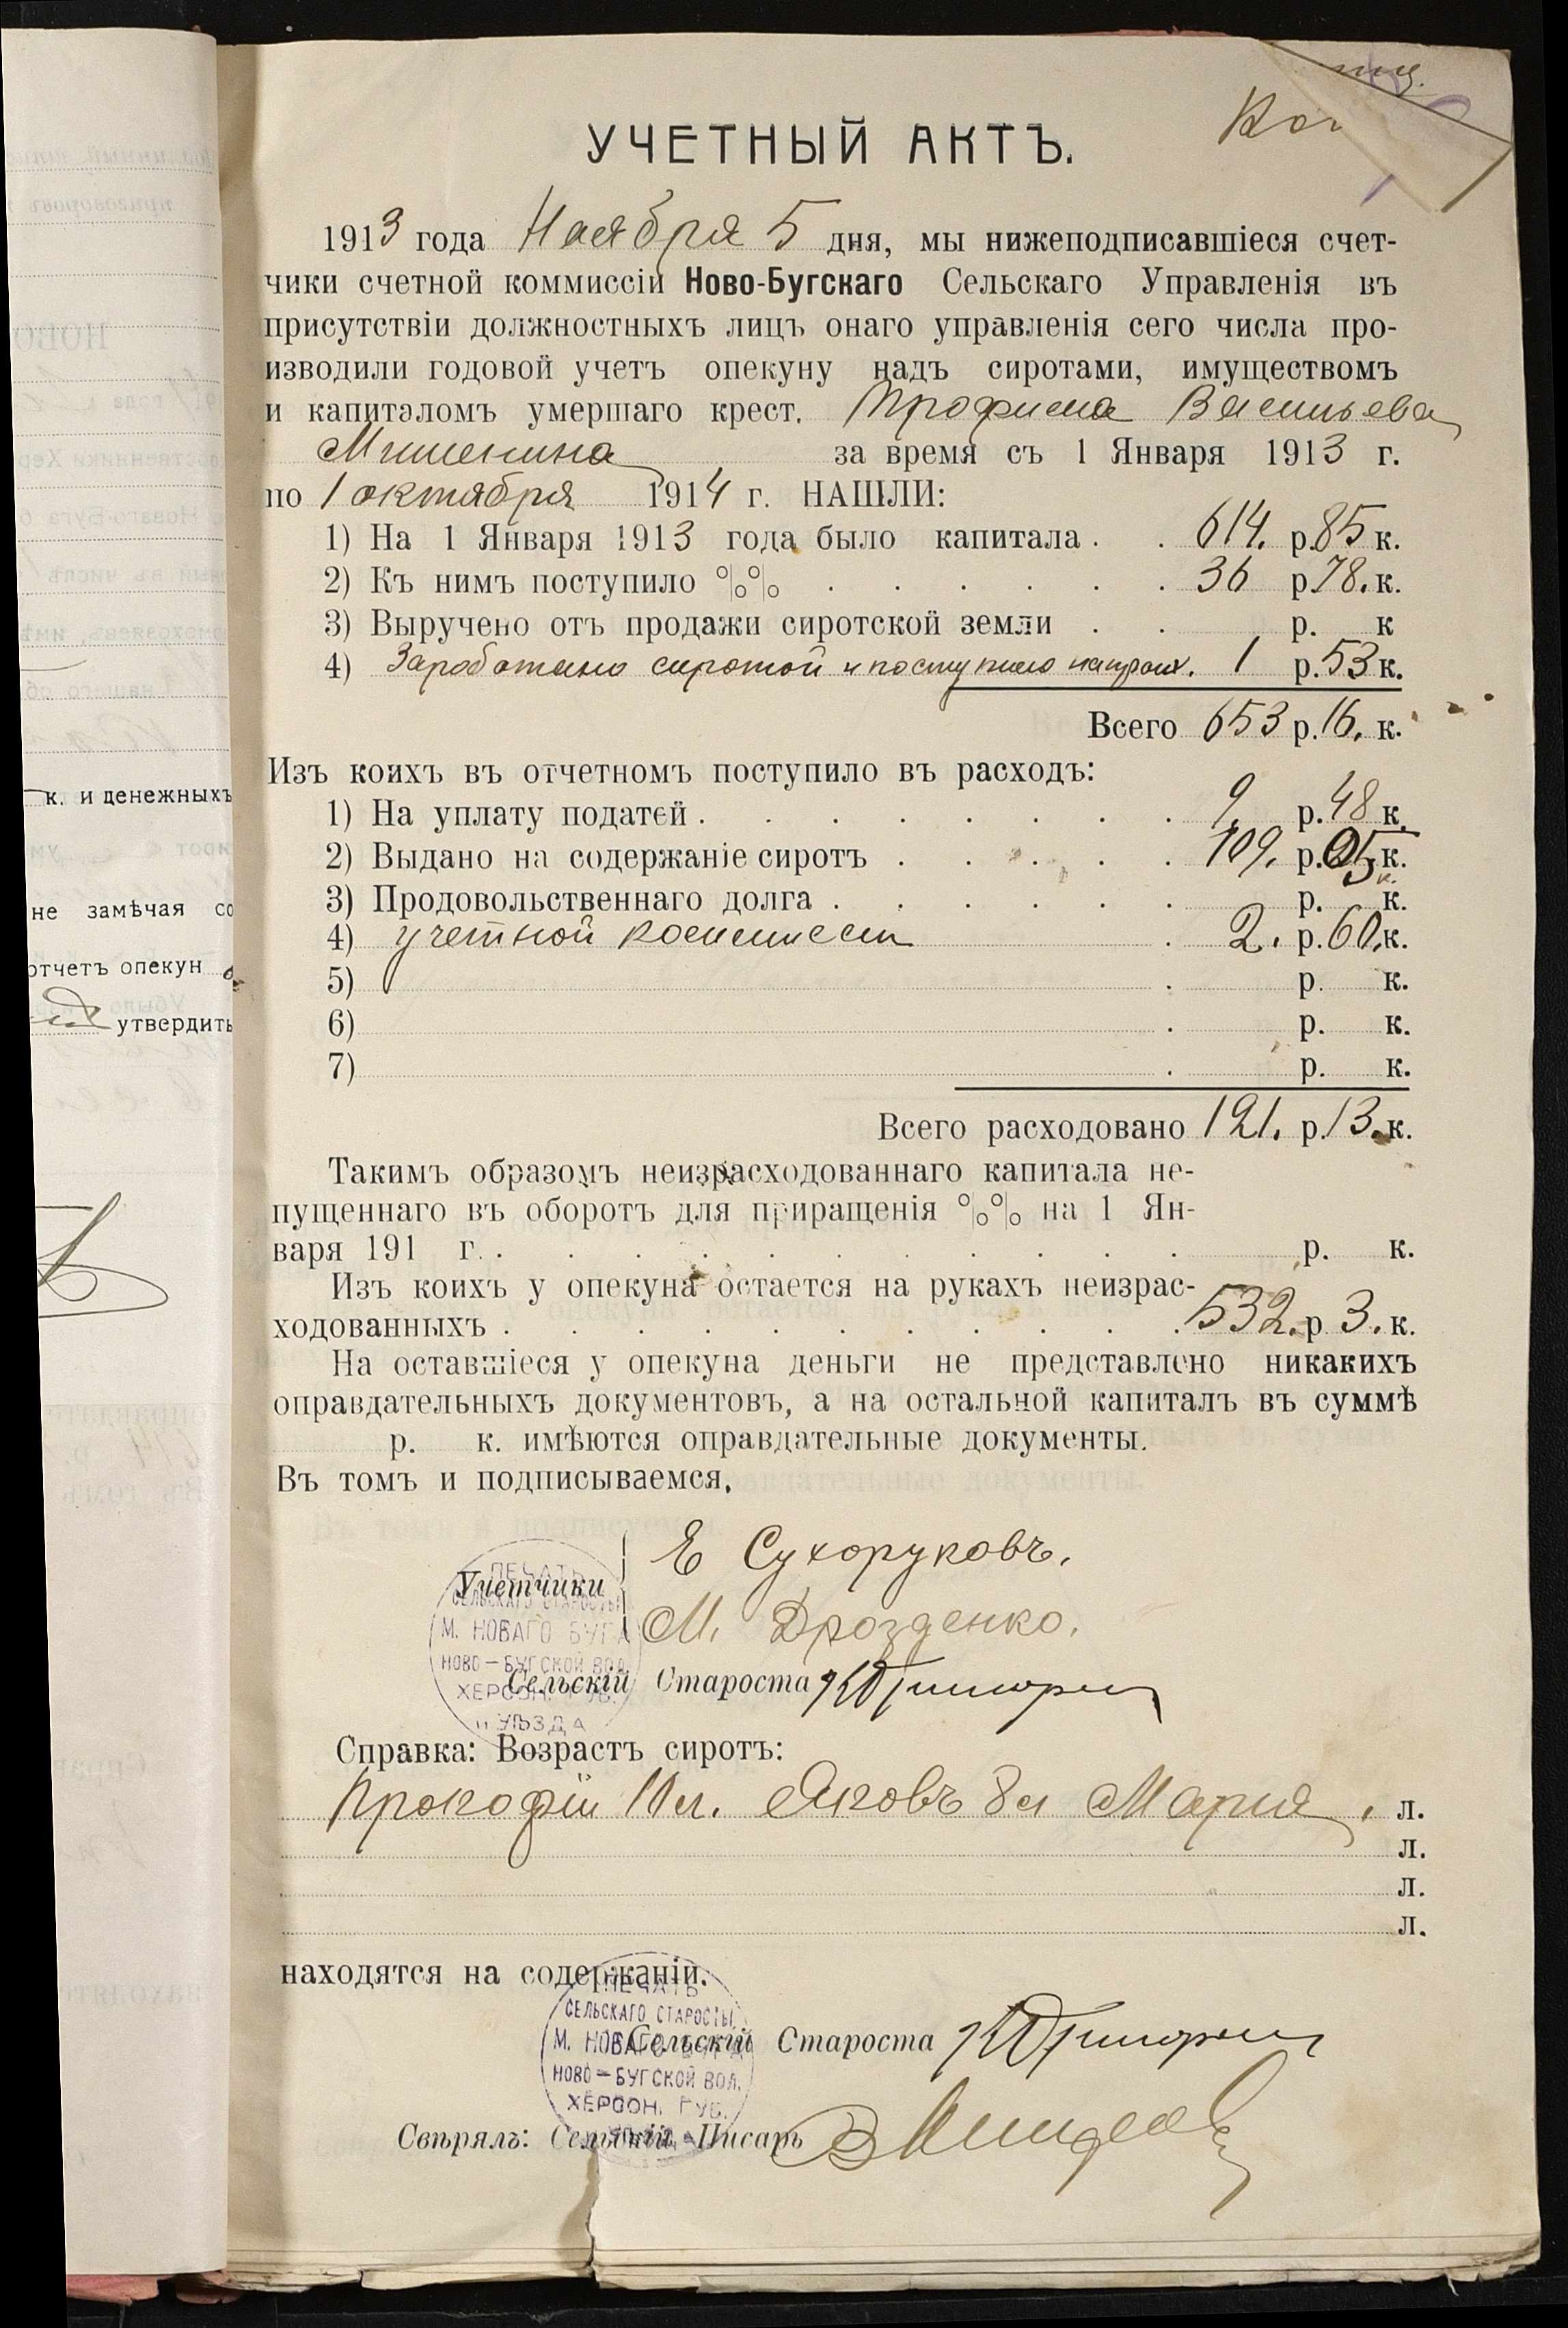 Ко
УЧЕТНЫЙ АКТЪ.
1913 года Ноября 5 дня, мы нижеподписавшіеся счет-
чики счетной коммиссіи Ново-Бугскаго Сельскаго Управленія въ
присутствіи должностныхъ лицъ онаго управленія сего числа про-
изводили годовой учетъ опекуну надъ сиротами, имуществомъ
и капиталомъ умершаго крест. Трофима Васильева
Мишенина за время съ 1 Января 1913 г.
по 1 октября 1914 г. НАШЛИ:
1) На 1 Января 1913 года было капитала . . 614. р. 85 к.
2) Къ нимъ поступило %% . . . . . . 36 р. 78. к.
3) Выручено отъ продажи сиротской земли . . р. к
4) Заработано сиротой и поступило 1 р. 53 к.
Всего 653 р. 16. к.
Изъ коихъ въ отчетномъ поступило въ расходъ:
1) На уплату податей . . . . . . . . 9. р. 48 к.
2) Выдано на содержаніе сиротъ . . . . . 109. р. 05 к.
3) Продовольственнаго долга . . . . . . р. к.
4) учетной коммиссіи . 2. р. 60. к.
5) . р. к.
6) . р. к.
7) . р. к.
Всего расходовано 121. р. 13. к.
Такимъ образомъ неизрасходованнаго капитала не-
пущеннаго въ оборотъ для приращенія %% на 1 Ян-
варя 191 г. . . . . . . . . . . . р. к.
Изъ коихъ у опекуна остается на рукахъ неизрас-
ходованныхъ . . . . . . . . . . . 532. р 3. к.
На оставшіеся у опекуна деньги не представлено никакихъ
оправдательныхъ документовъ, а на остальной капиталъ въ суммѣ
р. к. имѣются оправдательные документы.
Въ томъ и подписываемся,
Учетчики Е Сухоруковъ.
М. Дрозденко.
ПЕЧАТЬ
СЕЛЬСКАГО СТАРОСТЫ
М. НОВАГО БУГА
НОВО-БУГСКОЙ ВОЛ.
ХЕРСОН. ГУБ.
И УѢЗДА
Сельскій Староста
Справка: Возрастъ сиротъ:
Прокофій 11 л. Яковъ 8 л Марія . л.
л.
л.
л.
находятся на содержаніи.
ПЕЧАТЬ
СЕЛЬСКАГО СТАРОСТЫ
М. НОВАГО БУГА
НОВО-БУГСКОЙ ВОЛ.
ХЕРСОН. ГУБ.
Сельскій Староста
Свѣрялъ: Сельскій Писарь
к. и денежныхъ
не замѣчая со
отчетъ опекун
утвердить